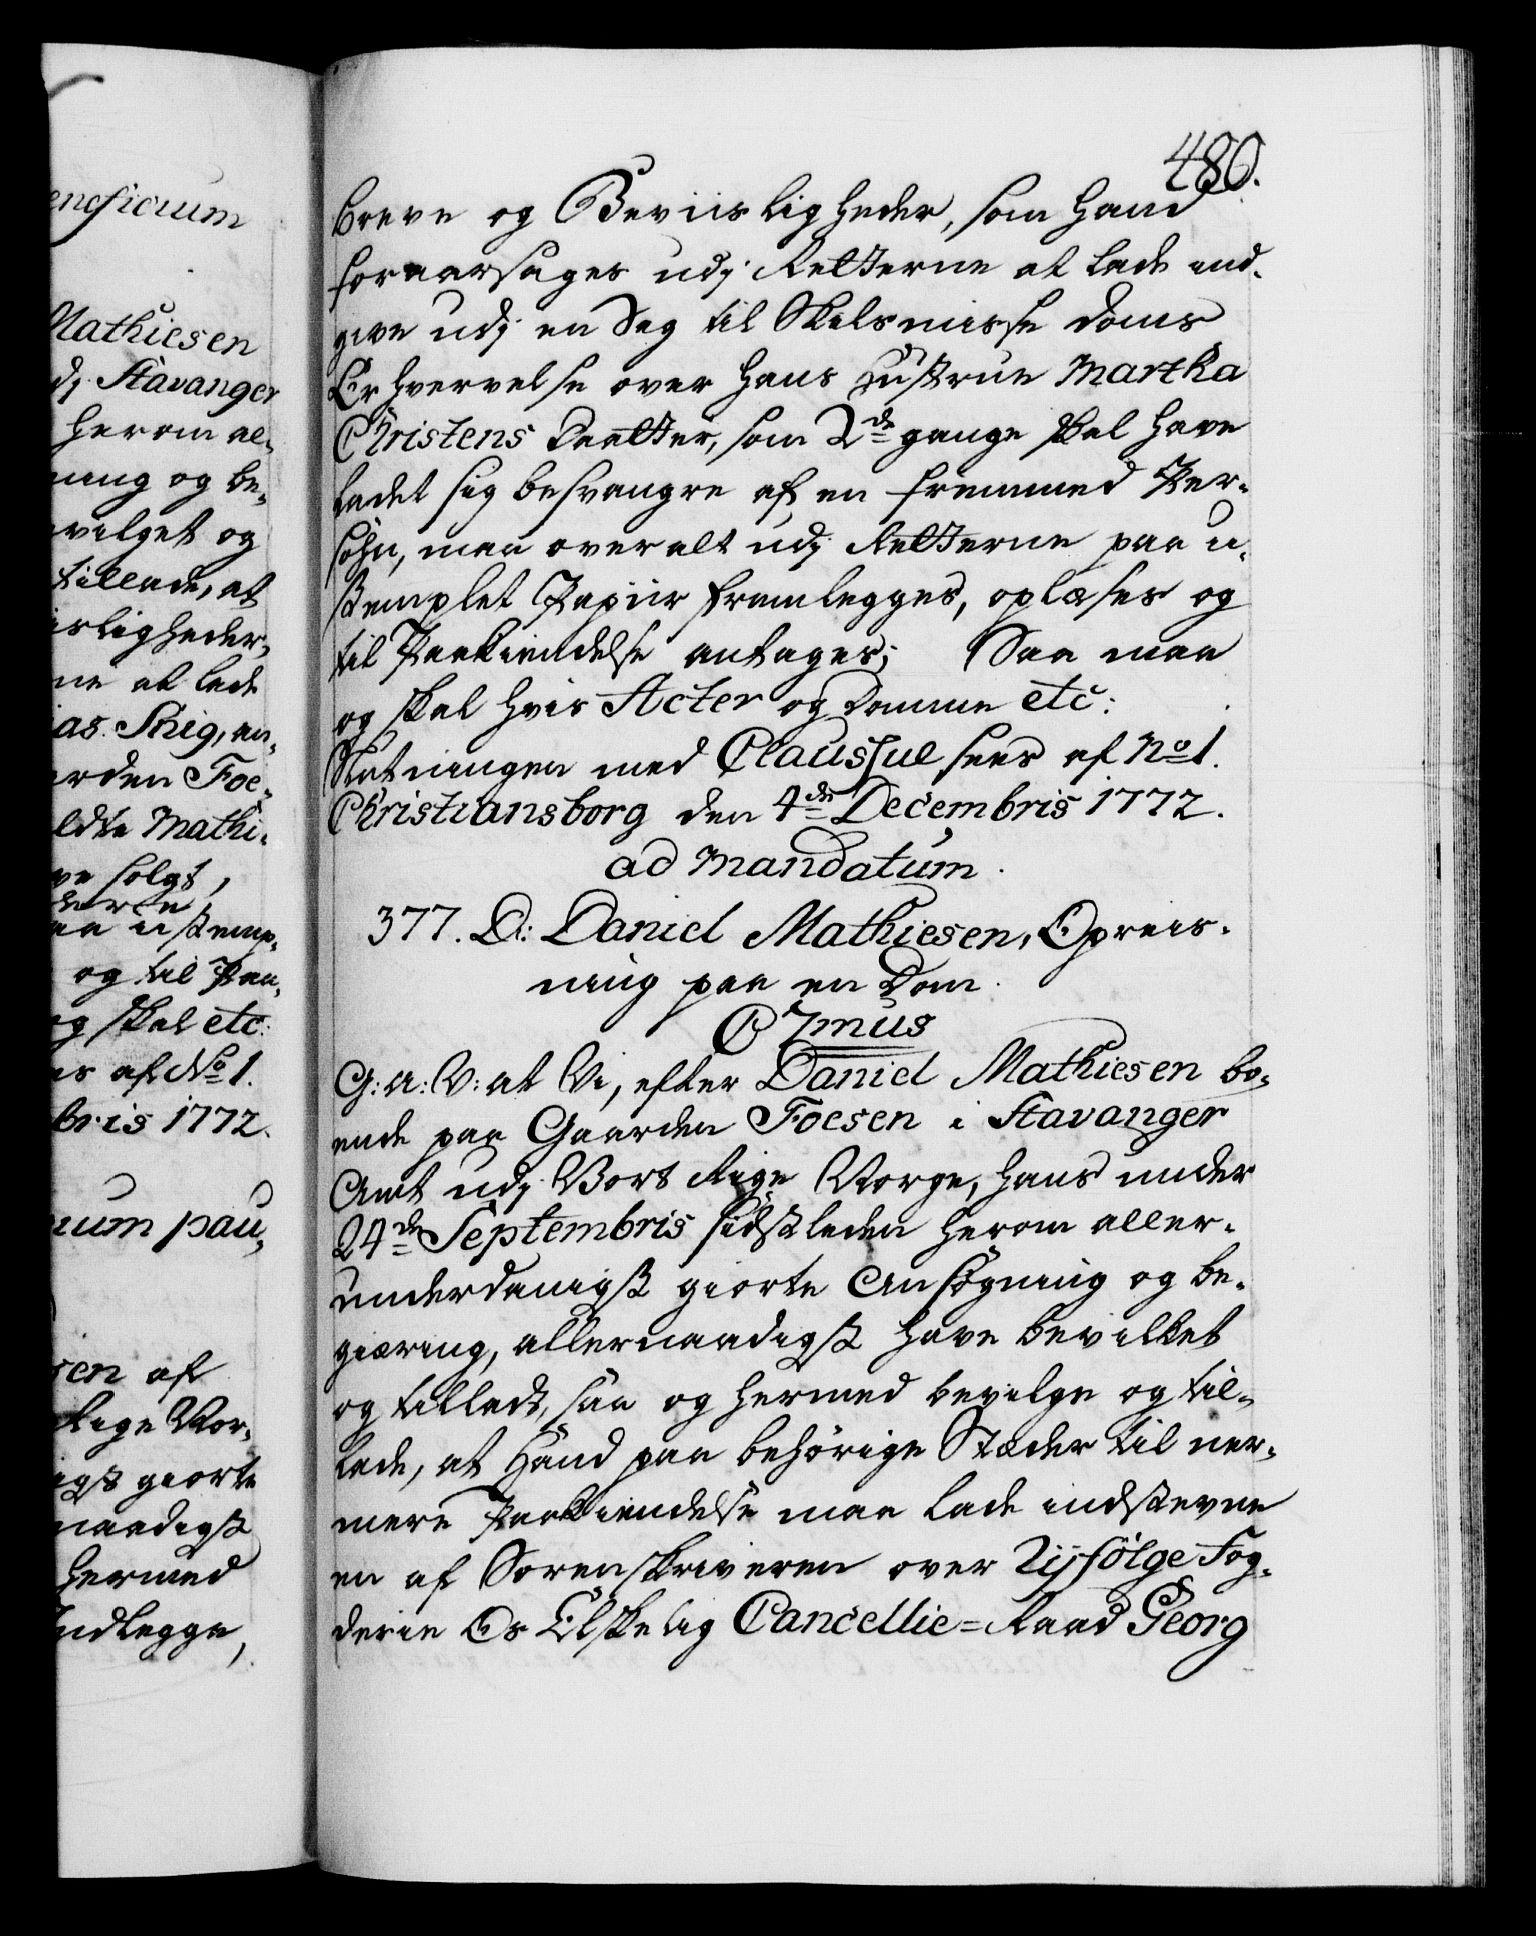 enficium
Mathiesen
dj Stavanger
herom al-
ning og be-
vilget og
tillade, at
isligheder,
ne at lade
as Skig, an-
rden Foe-
ldte Mathi-
ve solgt,
derte,
aa ustemp-
og til Paa-
og skal etc:
es af No 1.
bris 1772.
ium pau-
sen af
Rige Nor-
igst giorte
naadigst
hermed
Indlegge,
480.
breve og Beviisligheder, som Hand
foraarsages udj Retterne at lade ind-
give udj en Sag til Skilsmisse Doms
Erhvervelse over Hans Hustrue Martha
Christens Daatter, som 2de gange skal have
ladet sig besvangre af en fremmed Per-
sohn, maa overalt udj Retterne paa u-
stemplet Papiir fremlegges, oplæses og
til Paakiendelse antages; Saa maa
og skal hvis Acter og Domme etc:
Slutningen med Claussul sees af No 1.
Christiansborg den 4de Decembris 1772.
ad Mandatum.
377. D: Daniel Mathiesen, Opreis-
ning paa en Dom.
C 7mus
G: A: V: at Vi, efter Daniel Mathiesen bo-
ende paa Gaarden Foesen i Stavanger
Amt udj Vort Rige Norge, hans under
24de Septembris sidstleden herom aller-
underdanigst giorte Ansøgning og be-
giæring, allernaadigst have bevilket
og tilladt, saa og hermed bevilge og til-
lade, at Hand paa behørige Stæder til ner-
mere Paakiendelse maa lade indstevne
en af Sorenskriveren over Ryfølge Fog-
derie Os Elskelig Cancellie-Raad Georg